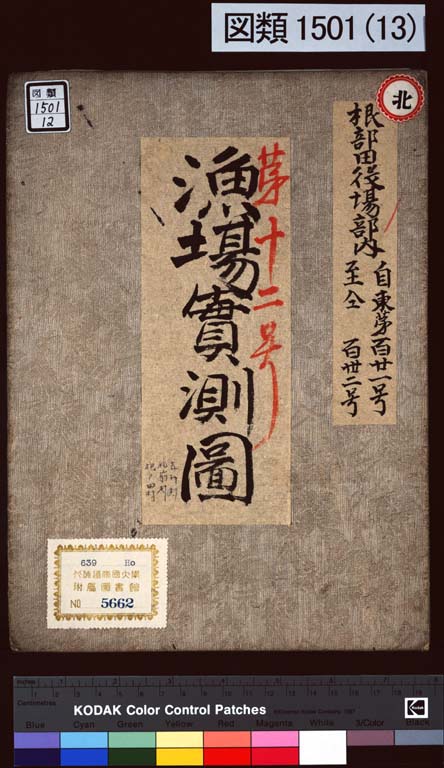 図類 1501 (13)
図類
1501
12
北
根部田役場部内
自東第百廿一号
至仝 百卅二号
第十二号
漁場實測圖
639 Ho
附屬圖書館
NO 5662
Inches
Centimetres
KODAK Color Control Patches
Kodak
Blue Cyan Green Yellow Red Magenta White 3/Color Black